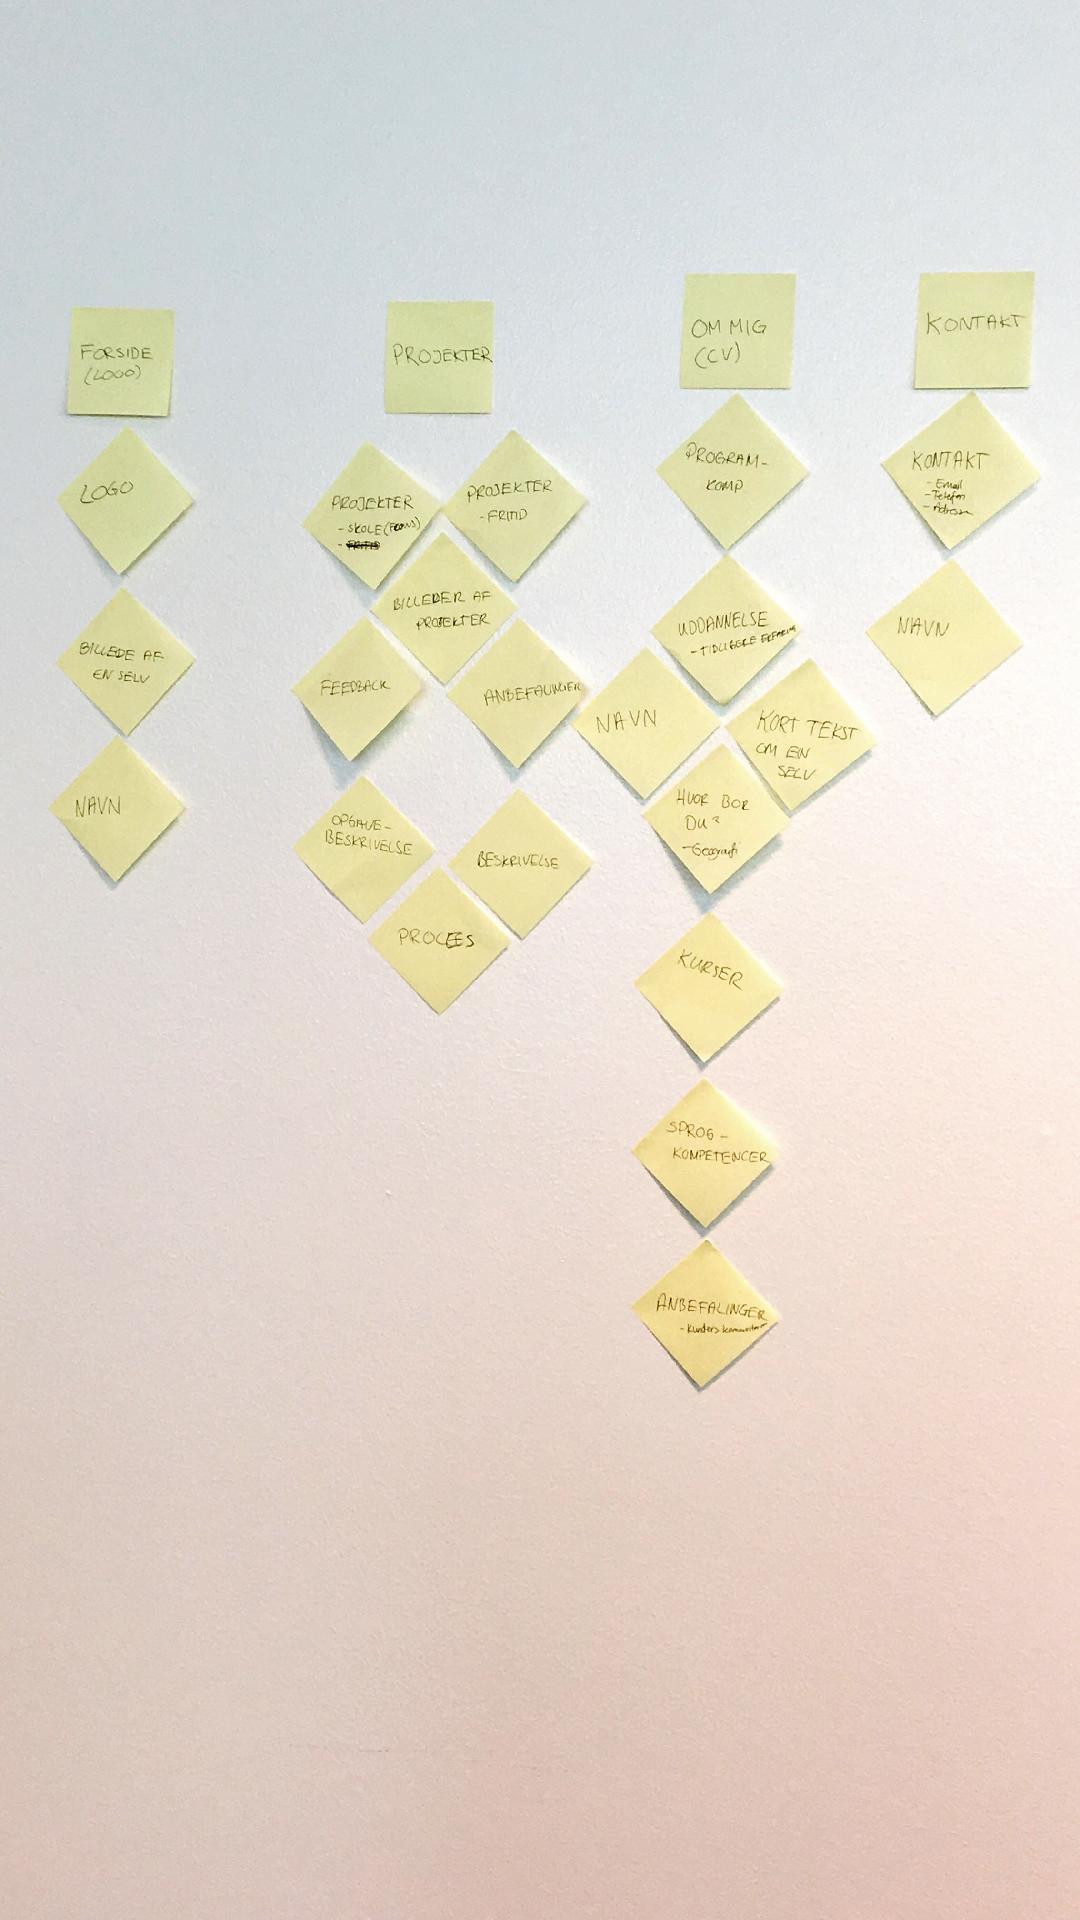 FORSIDE
(LOGO)
LOGO
BILLEDE AF
EN SELV
NAVN
PROJEKTER
PROJEKTER
- SKOLE (FOKUS)
PROJEKTER
- FRITID
BILLEDER AF
PROJEKTER
FEEDBACK
ANBEFALINGER
OPGAVE-
BESKRIVELSE
BESKRIVELSE
PROCEES
OM MIG
(CV)
PROGRAM-
KOMP
UDDANNELSE
- TIDLIGERE ERFARING
NAVN
KORT TEKST
OM EN
SELV
HVOR BOR
DU?
- Geografi
KURSER
SPROG-
KOMPETENCER
ANBEFALINGER
- Kunders
KONTAKT
KONTAKT
- Email
- Telefon
- Adresse
NAVN